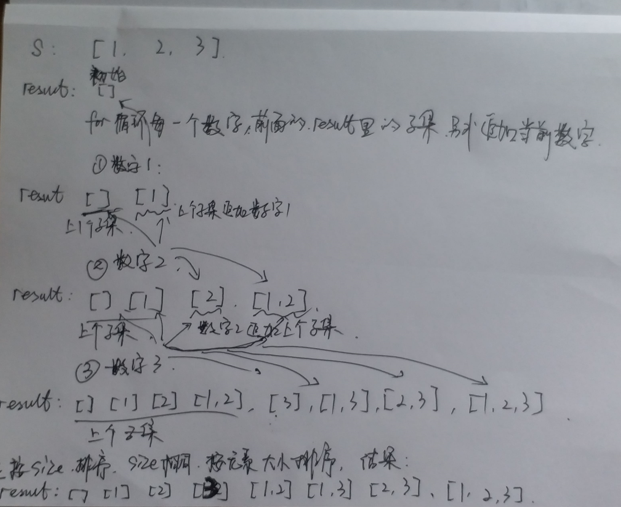 S: [1, 2, 3]
初始
result: []
for 循环每一个数字,前面的result里的子集 另外追加当前数字.
① 数字1:
result [] [1] 上个子集追加数字1
上个子集
② 数字2.
result: [] [1] [2]. [1,2]
上个子集 数字2追加上个子集.
③ 数字3.
result: [] [1] [2] [1,2], [3], [1,3], [2,3], [1,2,3]
上个子集
按size排序. size相同. 按元素大小排序, 结果:
result: [] [1] [2] [3] [1,2] [1,3] [2,3]、[1,2,3].